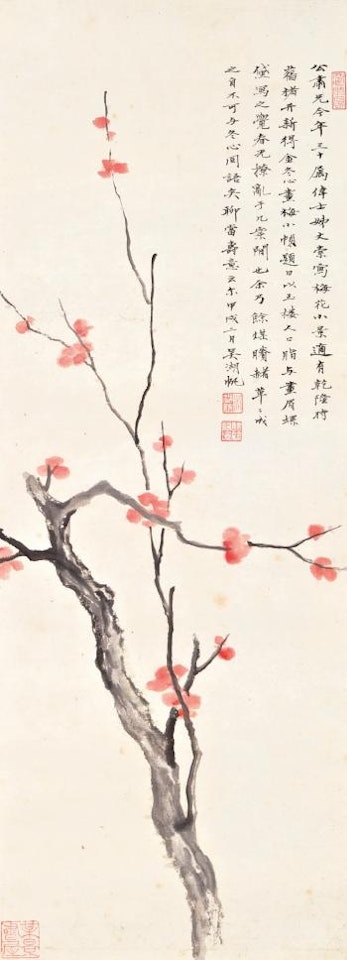 公肅兄今年三十屬偉士姊丈索寫梅花小景適有乾隆時
舊楮并新得金冬心畫梅小幀題曰以玉樓人口脂与畫眉螺
黛寫之覺春光撩亂于几案間也余乃餘煤賸赭草〻成
之自不可与冬心同語矣聊當壽意云尔甲戌二月吳湖帆